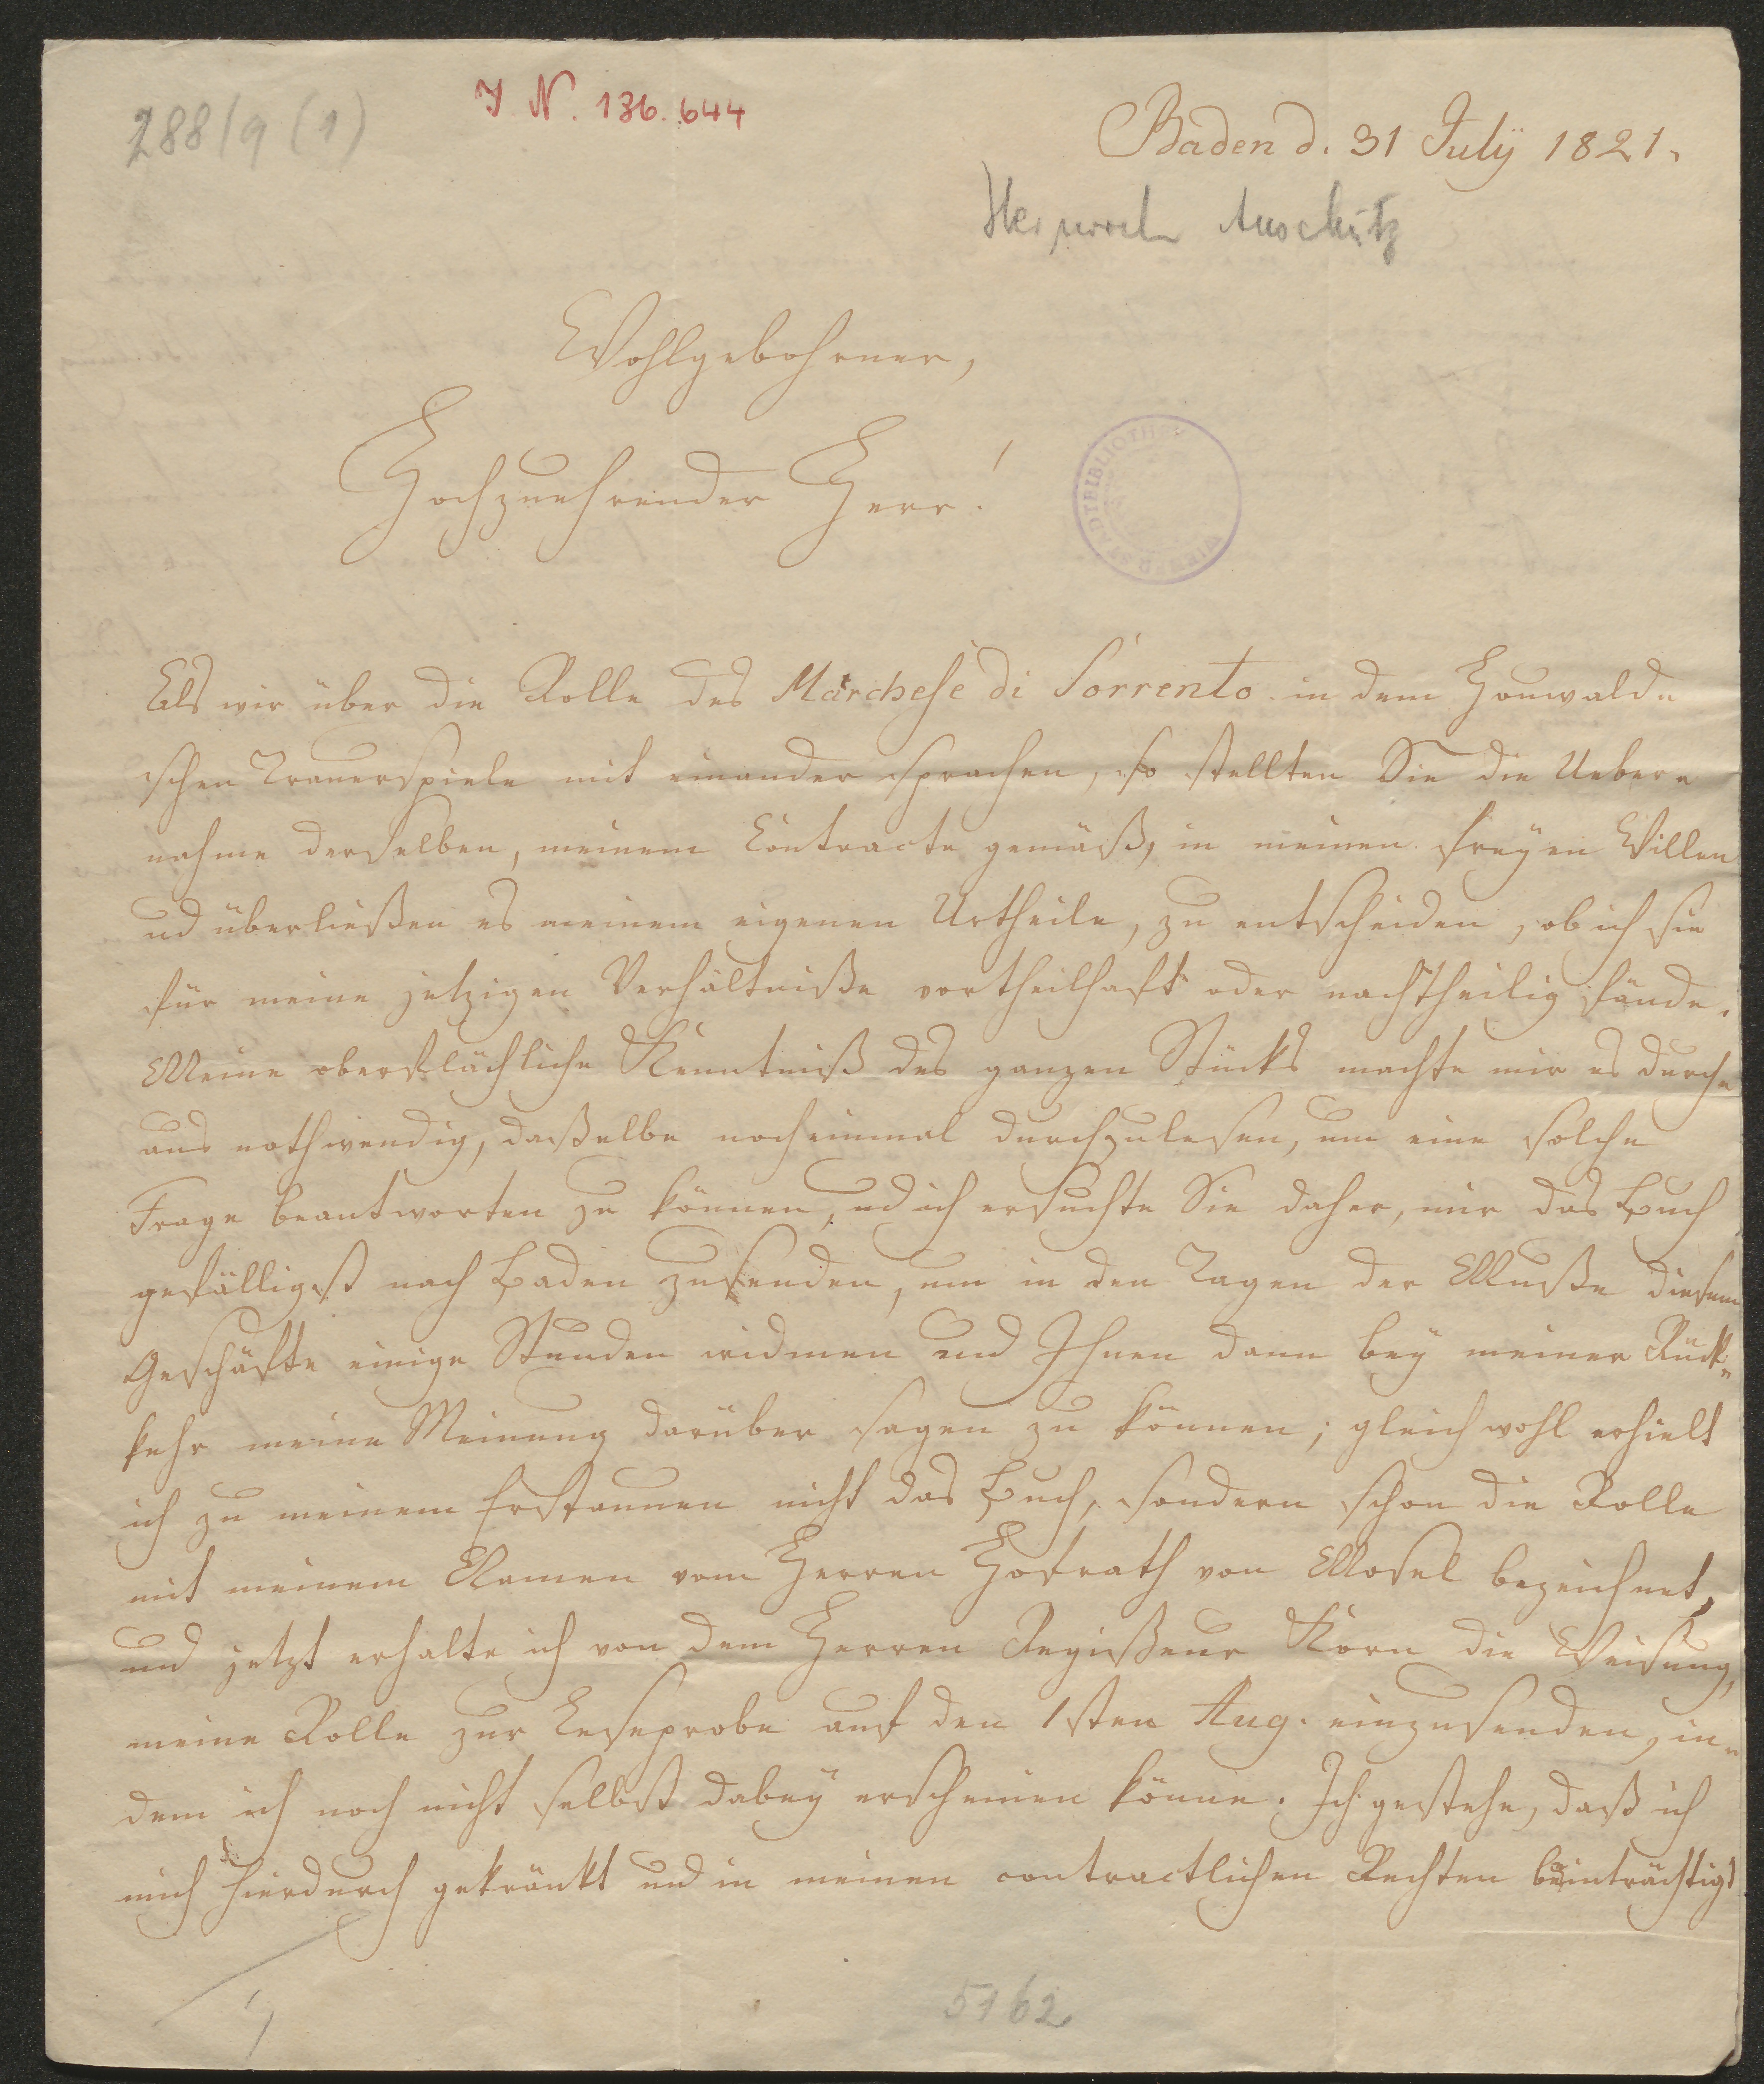 288/9 (1)
I N. 136.644
Baden d. 31 Julÿ 1821.
Heinrich Anschütz
Wohlgebohrner,
Hochzuehrender Herr!
WIENER STADTBIBLIOTHEK
Als wir über die Rolle des Marchese di Sorrento in dem Houwald-
schen Trauerspiele mit einander sprachen, so stellten Sie die Ueber-
nahme derselben, meinem Contracte gemäß, in meinen freyen Willen
ud überließen es meinem eigenen Urtheile, zu entscheiden, ob ich sie
für meine jetzigen Verhältniße vortheilhaft oder nachtheilig fände.
Meine oberflächliche Kenntniß des ganzen Stücks machte mir es durch-
aus nothwendig, daßelbe noch einmal durchzulesen, um eine solche
Frage beantworten zu können, ud ich ersuchte Sie daher, mir das Buch
gefälligst nach Baden zusenden, um in den Tagen der Muße diesem
Geschäfte einige Stunden widmen und Ihnen dann bey meiner Rück-
kehr meine Meinung darüber sagen zu können; gleichwohl erhielt
ich zu meinem Erstaunen nicht das Buch, sondern schon die Rolle
mit meinem Namen vom Herren Hofrath von Mosel bezeichnet,
und jetzt erhalte ich von dem Herren Regißeur Korn die Weisung,
meine Rolle zur Leseprobe auf den 1sten Aug. einzusenden, in-
dem ich noch nicht selbst dabey erscheinen könne. Ich gestehe, daß ich
mich hierdurch gekränkt und in meinen contractlichen Rechten beeinträchtigt
5162